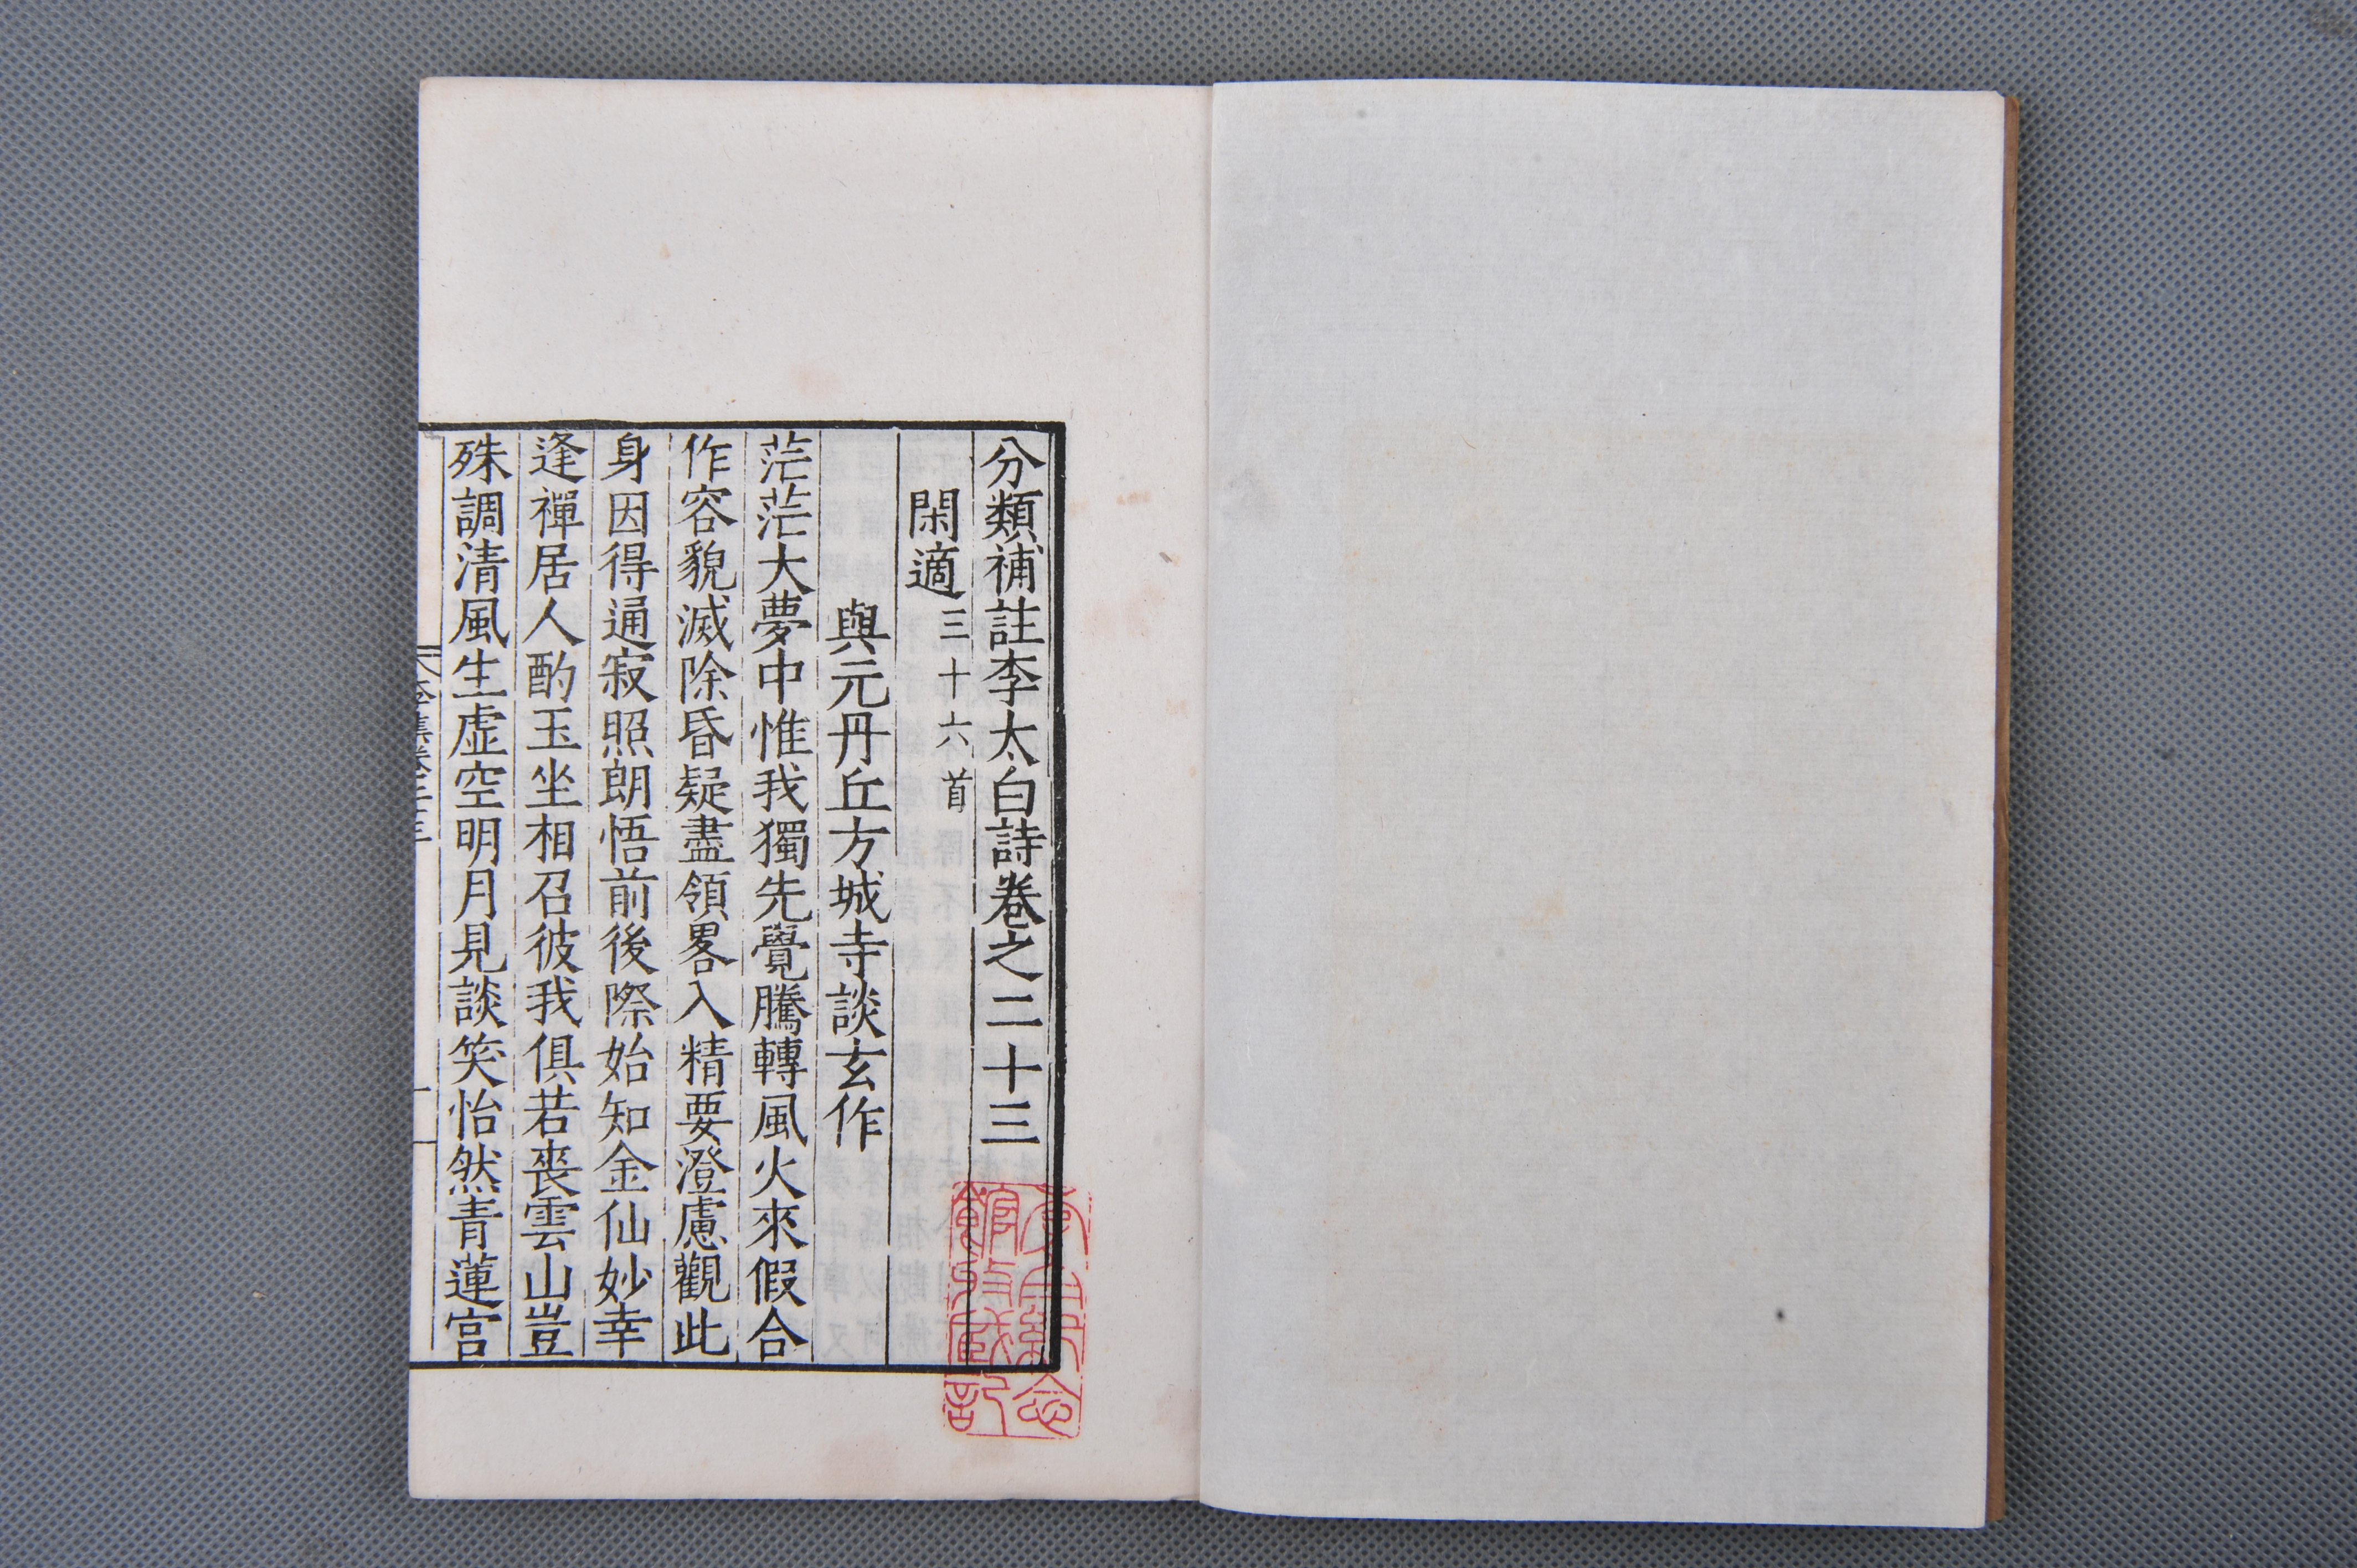 分類補註李太白詩卷之二十三
閑適三十六首
與元丹丘方城寺談玄作
茫茫大夢中惟我獨先覺騰轉風火來假合
作容貌滅除昏疑盡領畧入精要澄慮觀此
身因得通寂照朗悟前後際始知金仙妙幸
逢禪居人酌玉坐相召彼我俱若喪雲山豈
殊調清風生虛空明月見談笑怡然青蓮宮